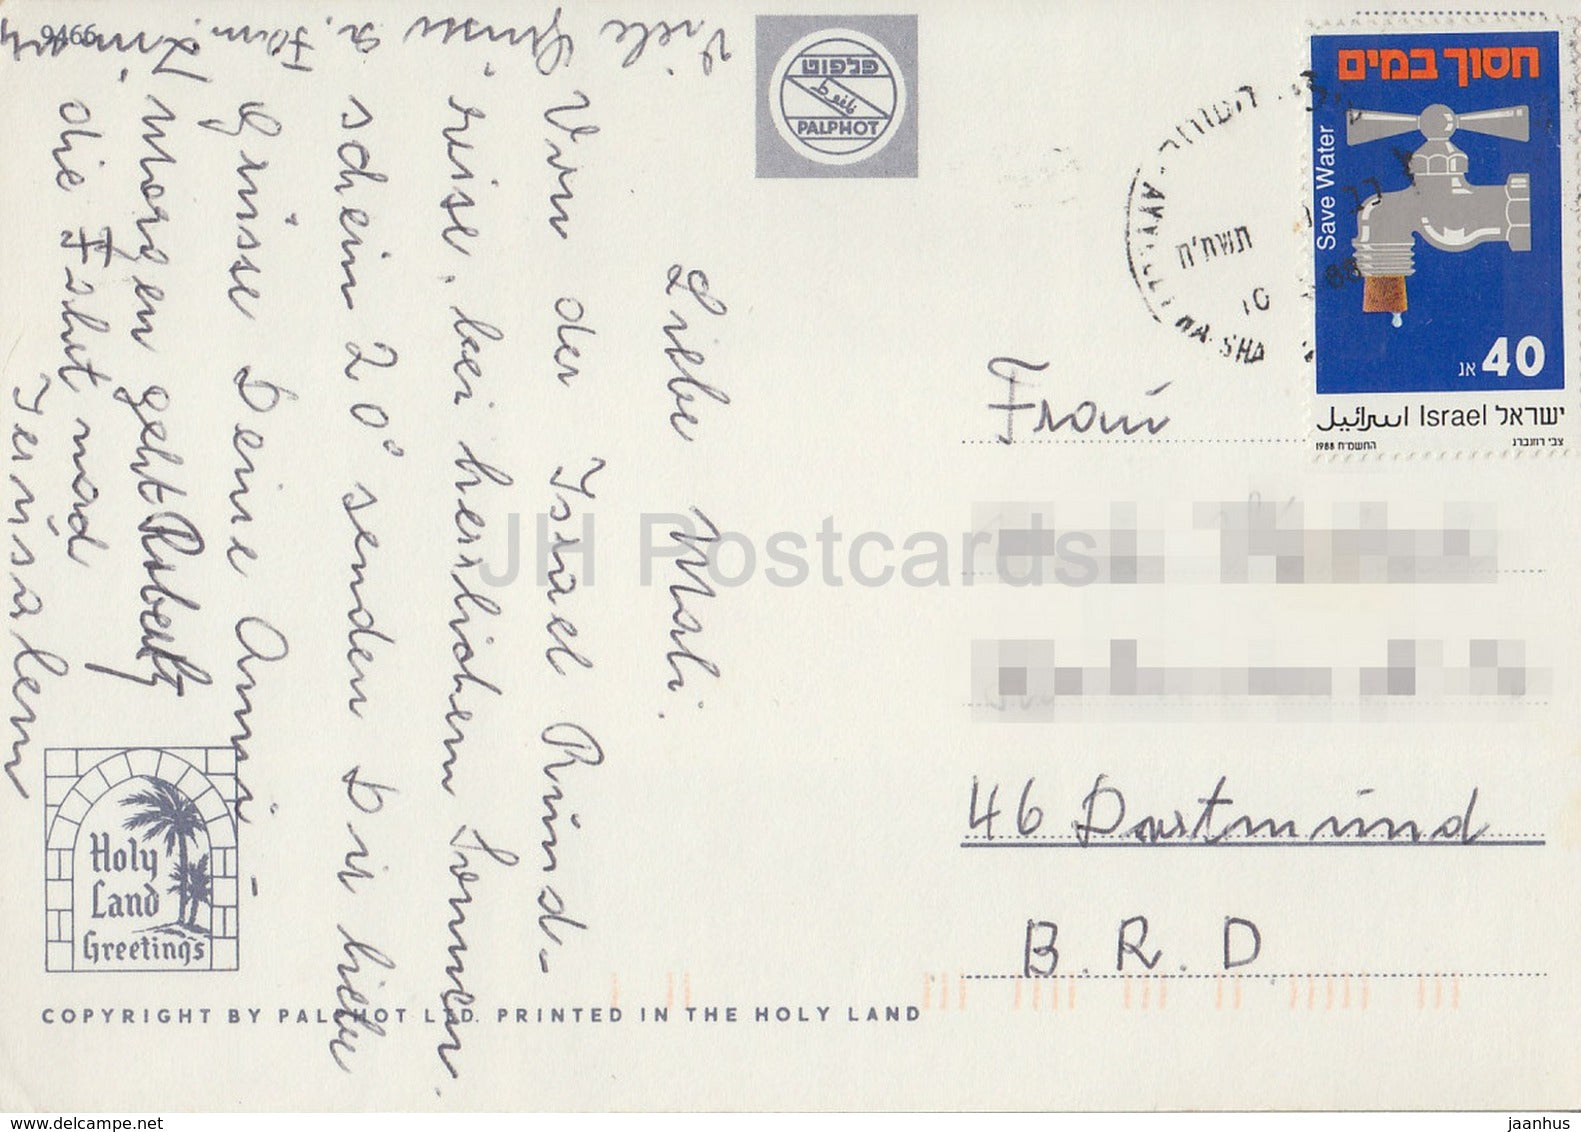 9466
Liebe Mali.
Von der Israel Rund-
reise, bei herrlichem Sommer.
schein 20° senden Dir liebe
Grüsse Deine Anni -
Morgen geht
die Fahrt nach
Jerusalem
Viele Grüsse
a. Fam.
פלפוט
PALPHOT
חסוך במים
Save Water
40 אג
ישראל Israel اسرائيل
1988 התשמ"ח
צבי רוזנברג
תשמ"ח
10
88
HA-SHA
Frau
46 Dortmund
B.R.D
Holy
Land
Greetings
COPYRIGHT BY PALPHOT LTD. PRINTED IN THE HOLY LAND
JH Postcards
www.delcampe.net
jaanhus